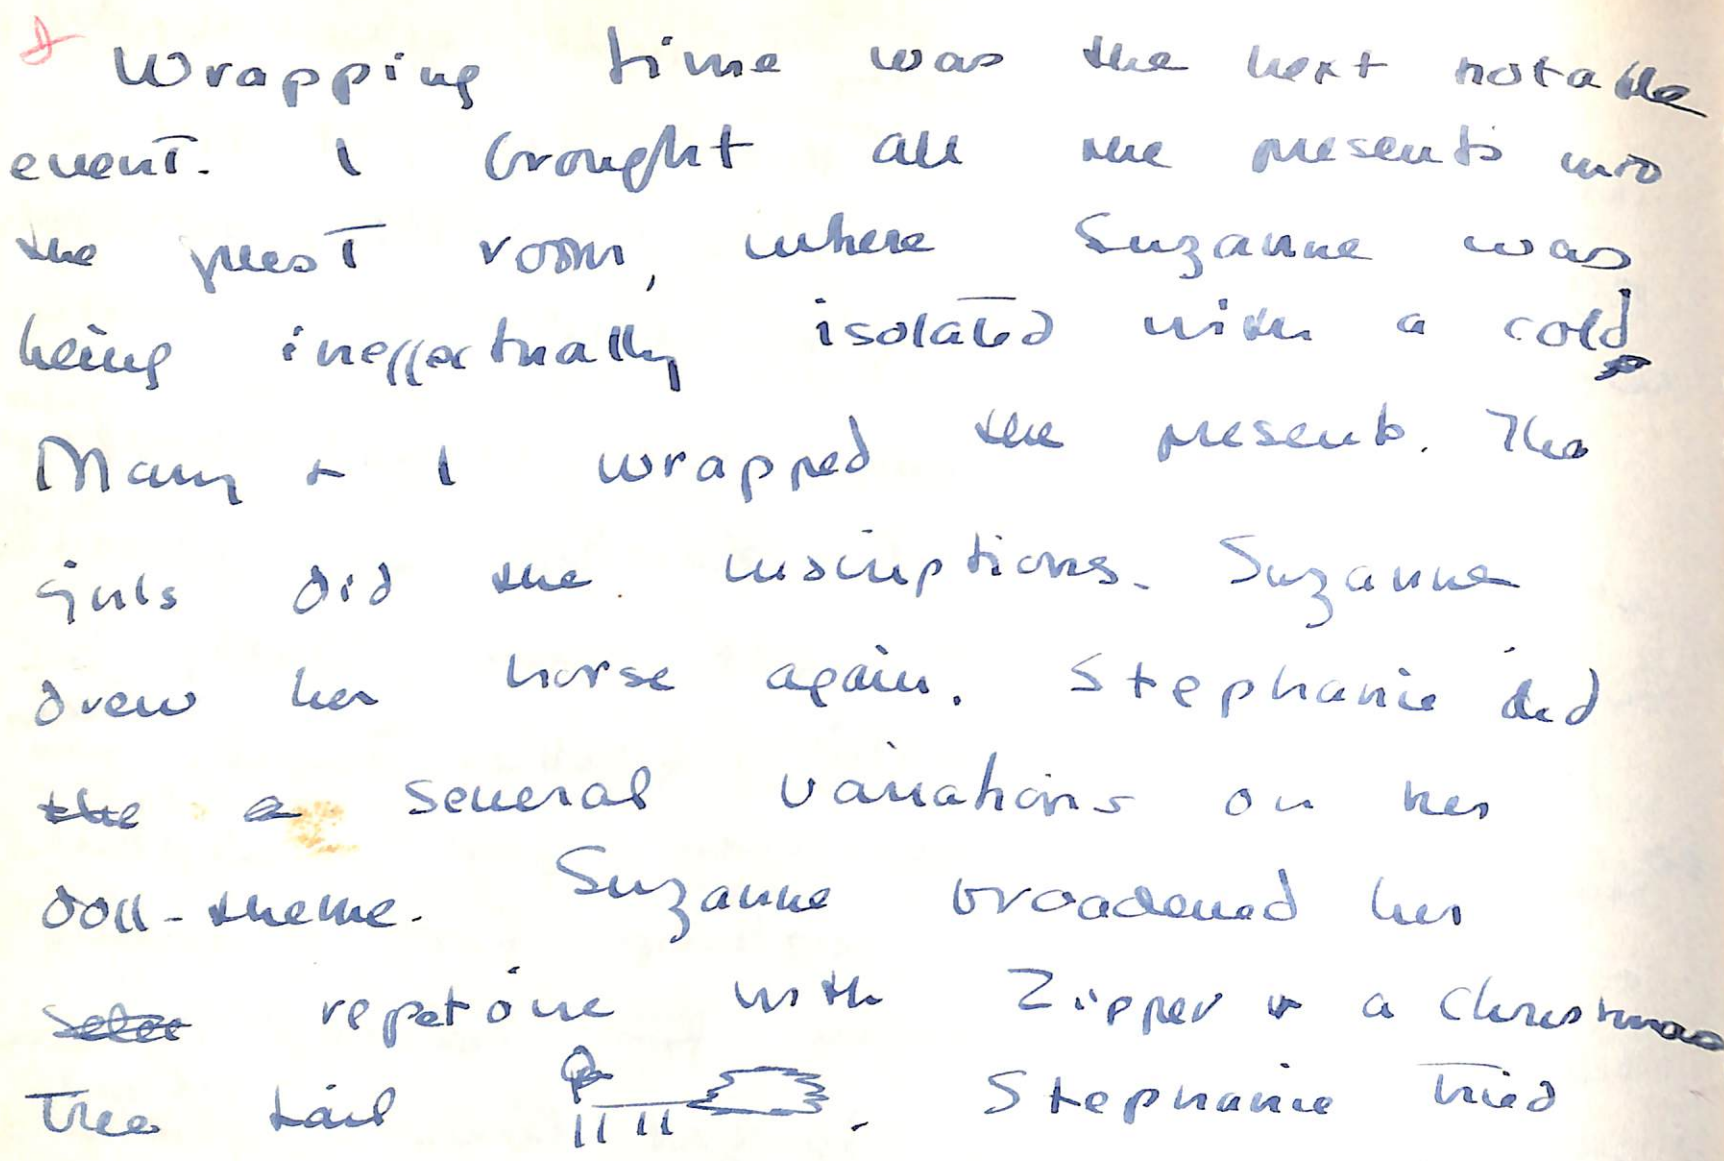 Wrapping time was the next notable
event. I brought all the presents into
the guest room, where Suzanne was
being ineffectually isolated with a cold
Mary + I wrapped the presents. The
girls did the inscriptions. Suzanne
drew her horse again. Stephanie did
the a several variations on her
doll-theme. Suzanne broadened her
repetoire with Zipper + a Christmas
Tree tail . Stephanie tried